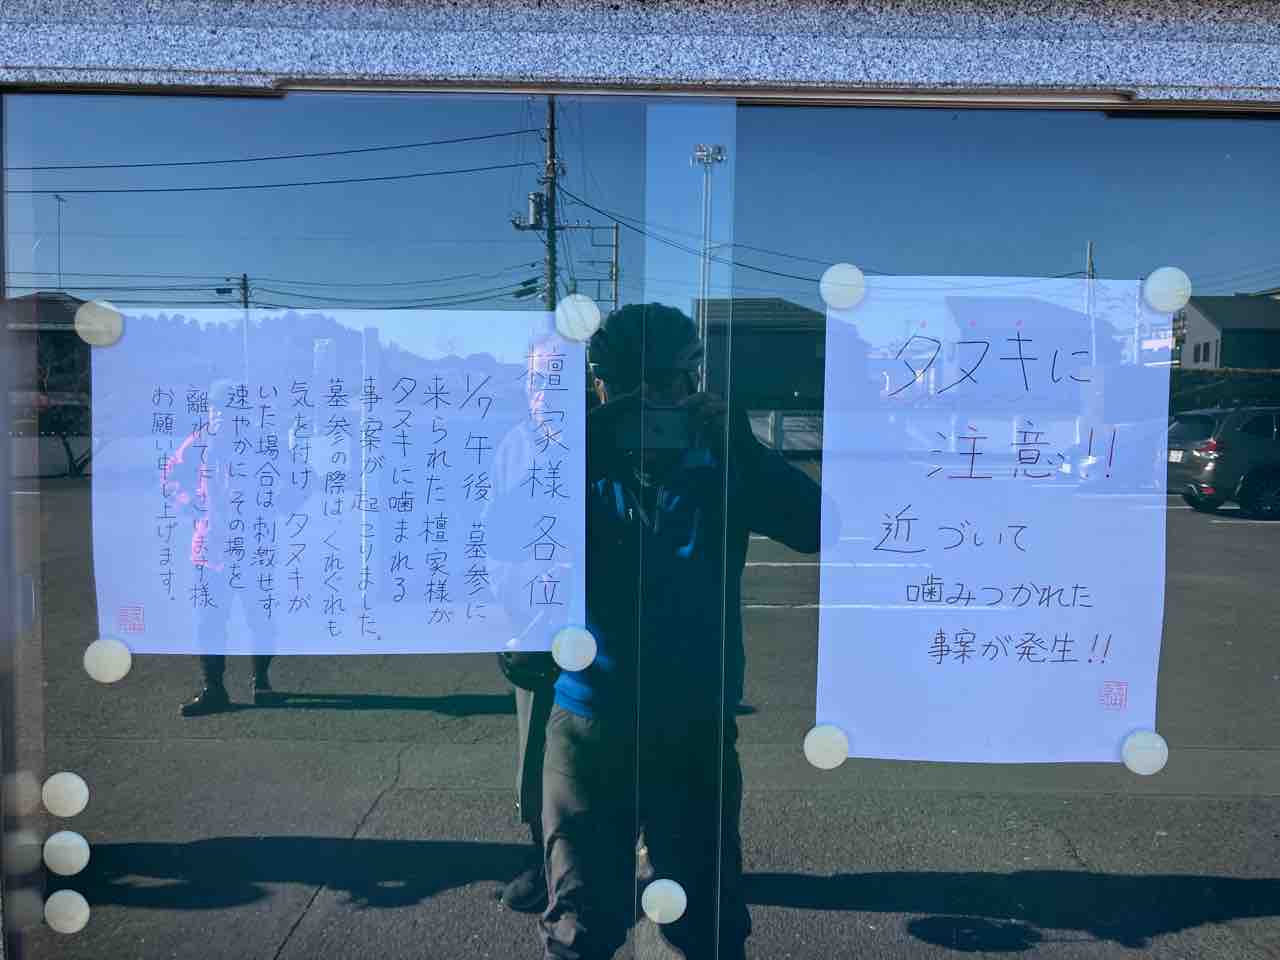 檀家様各位
1/7午後 墓参に
来られた檀家様が
タヌキに噛まれる
事案が起こりました。
墓参の際は、くれぐれも
気を付け、タヌキが
いた場合は刺激せず
速やかにその場を
離れて下さいます様
お願い申し上げます。
タヌキに
注意!!
近づいて
噛みつかれた
事案が発生!!